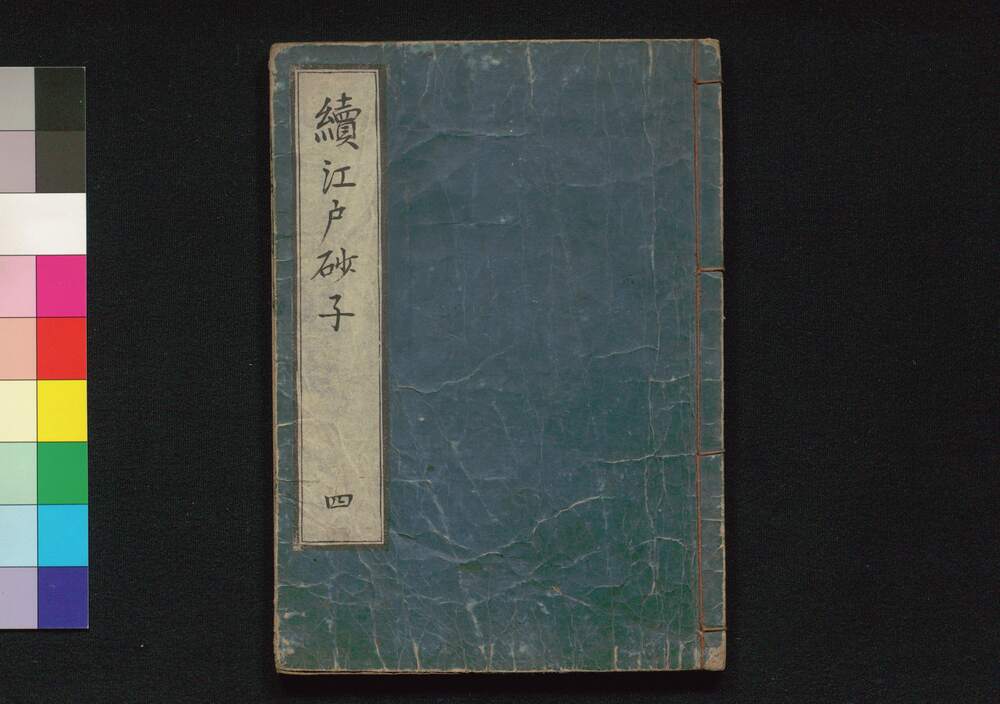 續江戸砂子
四